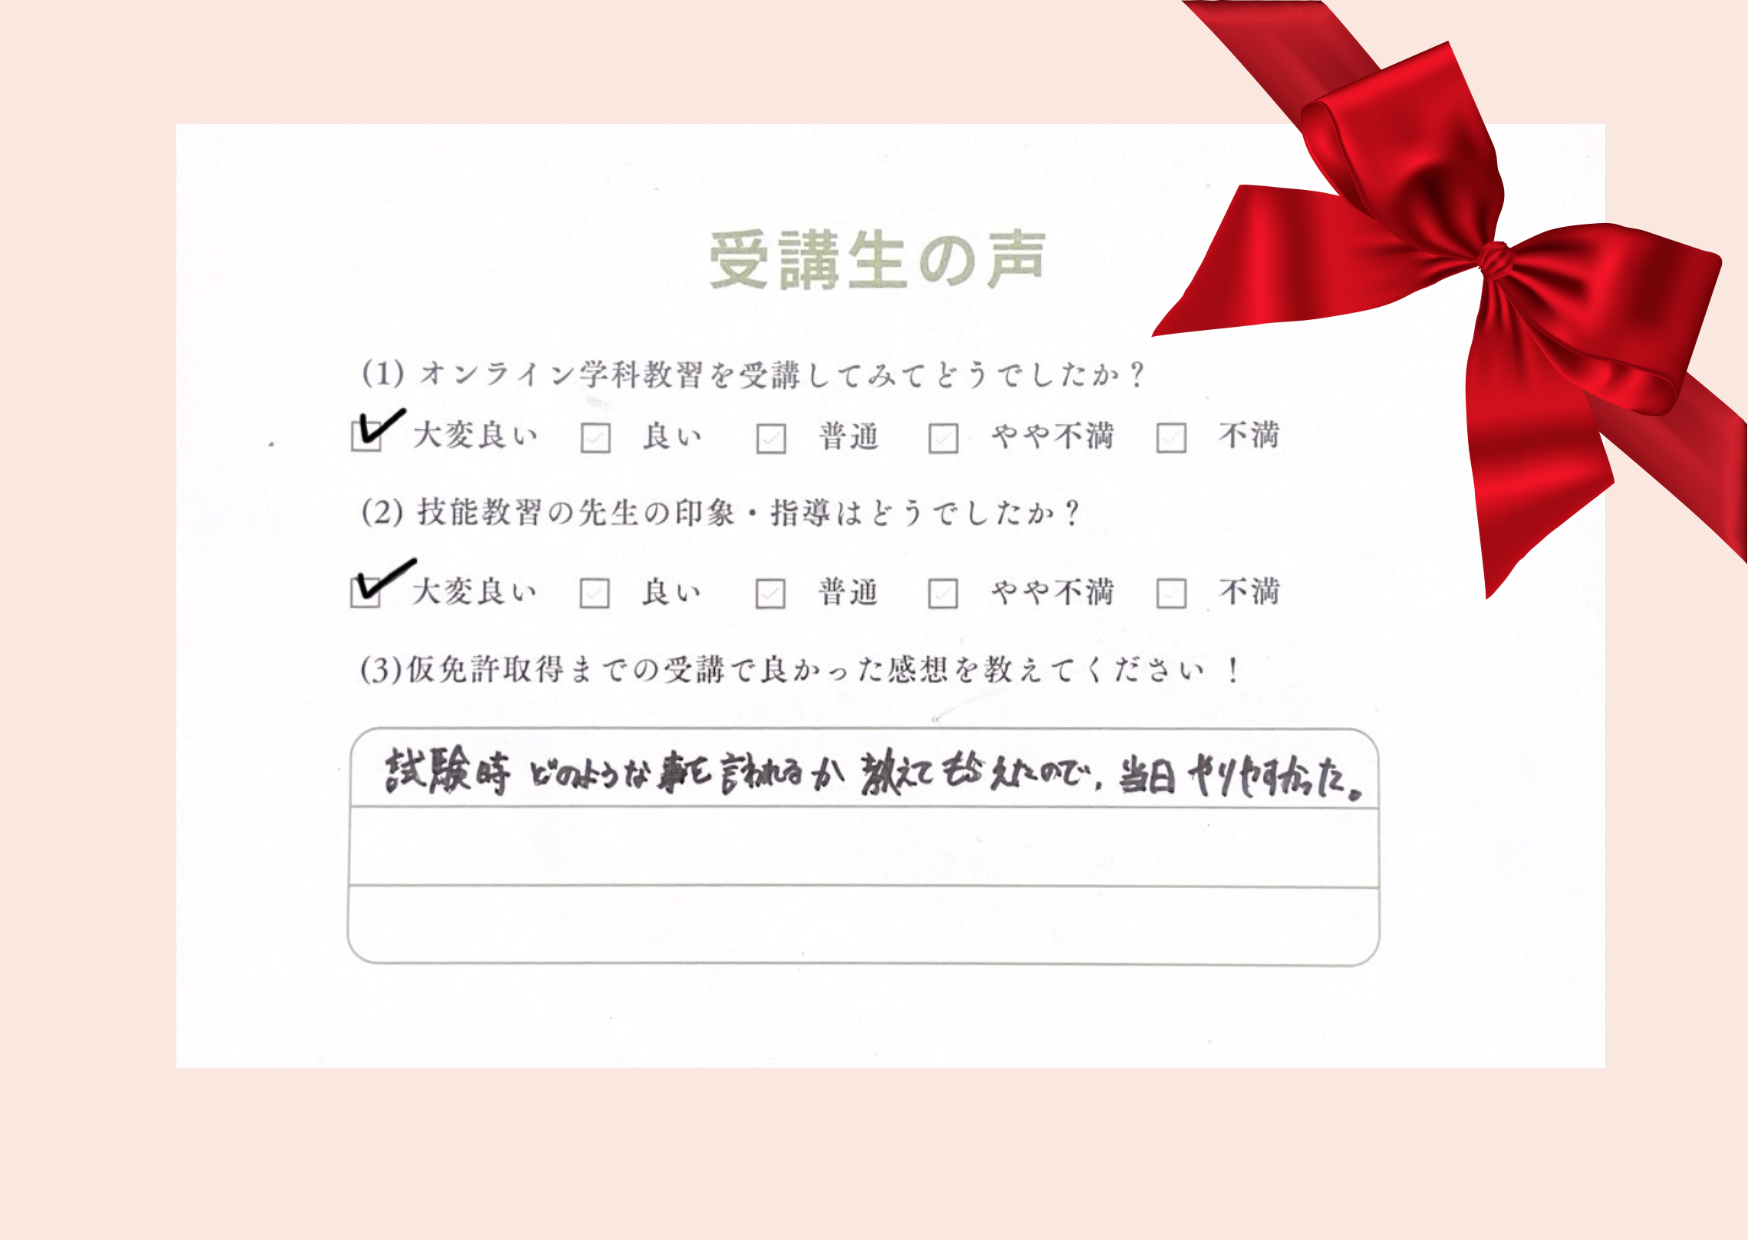 受講生の声
(1) オンライン学科教習を受講してみてどうでしたか？
大変良い 良い 普通 やや不満 不満
(2) 技能教習の先生の印象・指導はどうでしたか？
大変良い 良い 普通 やや不満 不満
(3)仮免許取得までの受講で良かった感想を教えてください ！
試験時 どのような事を言われるか 教えてもらえたので、当日 やりやすかった。